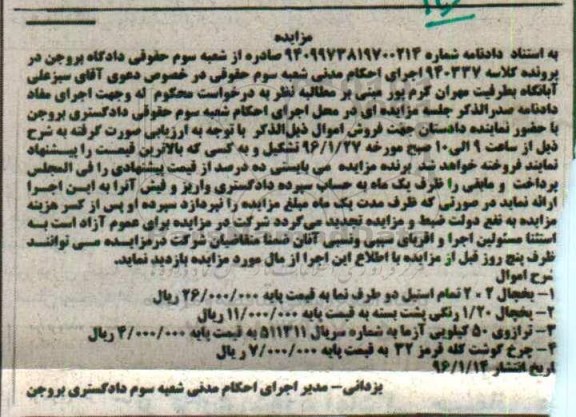 مزایده
به استناد دادنامه شماره ۹۴۰۹۹۷۳۸۱۹۷۰۰۲۱۴ صادره از شعبه سوم حقوقی دادگاه بروجن در
پرونده کلاسه ۹۴۰۳۳۷ اجرای احکام مدنی شعبه سوم حقوقی در خصوص دعوی آقای سبزعلی
آبانگاه بطرفیت مهران کرم پور مبنی بر مطالبه نظر به درخواست محکوم له وجهت اجرای مفاد
دادنامه صدرالذکر جلسه مزایده ای در محل اجرای احکام شعبه سوم حقوقی دادگستری بروجن
با حضور نماینده دادستان جهت فروش اموال ذیل‌الذکر با توجه به ارزیابی صورت گرفته به شرح
ذیل از ساعت ۹ الی۱۰ صبح مورخه ۹۶/۱/۲۷ تشکیل و به کسی که بالاترین قیمت را پیشنهاد
نمایند فروخته خواهد شد برنده مزایده می بایستی ده درصد از قیمت پیشنهادی را فی المجلس
پرداخت و مابقی را ظرف یک ماه به حساب سپرده دادگستری واریز و فیش آنرا به این اجرا
ارائه نماید در صورتی که ظرف مدت یک ماه مبلغ مزایده را نپردازد سپرده او پس از کسر هزینه
مزایده به نفع دولت ضبط و مزایده تجدید می‌گردد شرکت در مزایده برای عموم آزاد است به
استثنا مسئولین اجرا و اقربای سببی ونسبی آنان ضمنا متقاضیان شرکت درمزایده می توانند
ظرف پنج روز قبل از مزایده با اطلاع این اجرا از مال مورد مزایده بازدید نماید.
شرح اموال
۱- یخچال ۲۰۲ تمام استیل دو طرف نما به قیمت پایه ۲۶/۰۰۰/۰۰۰ ریال
۲- یخچال ۱/۲۰ رنگی پشت بسته به قیمت پایه ۱۱/۰۰۰/۰۰۰ ریال
۳- ترازوی ۵۰ کیلویی آزما به شماره سریال ۵۱۱۳۱۱ به قیمت پایه ۴/۰۰۰/۰۰۰ ریال
۴- چرخ گوشت کله قرمز ۳۲ به قیمت پایه ۷/۰۰۰/۰۰۰ ر یال
تاریخ انتشار ۹۶/۱/۱۴
یزدانی- مدیر اجرای احکام مدنی شعبه سوم دادگستری بروجن